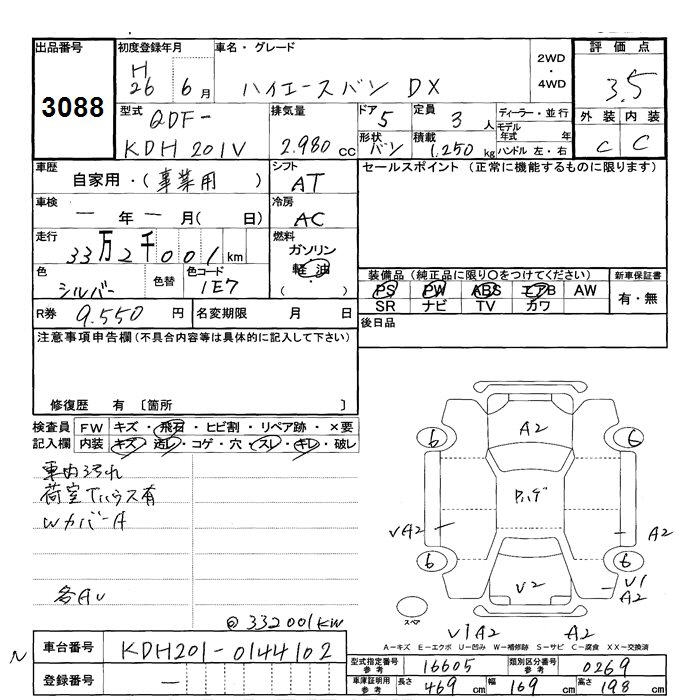 出品番号 3088
初度登録年月 H26 6月
車名・グレード ハイエースバン DX
2WD・4WD
評価点 3.5
外装 C 内装 C
型式 QDF-KDH201V
排気量 2.980cc
ドア 5
形状 バン
定員 3人
積載 1.250kg
ディーラー・並行
モデル年式 年
ハンドル 左・右
車歴 自家用・(事業用)
シフト AT
車検 一年一月(日)
冷房 AC
走行 33万2千001km
燃料 ガソリン 軽油 (・)
色 シルバー 色替
色コード 1E7
R券 9.550円
名変期限 月 日
セールスポイント(正常に機能するものに限ります)
装備品(純正品に限り○をつけてください)
PS PW ABS エアB AW
SR ナビ TV カワ
新車保証書 有・無
後日品
注意事項申告欄(不具合内容等は具体的に記入して下さい)
修復歴 有〔箇所 〕
検査員記入欄
FW キズ・飛石・ヒビ割・リペア跡・×要
内装 キズ・汚レ・コゲ・穴・スレ・キレ・破レ
車内汚れ
荷室
Wカバー A
各AU
@332001KW
A2
6 6
VA2
A2
6 6
V2
V1
A2
スペア
V1A2 A2
A-キズ E-エクボ U-凹み W-補修跡 S-サビ C-腐食 XX-交換済
N
車台番号 KDH201-0144102
登録番号 —
型式指定番号参考 16605
類別区分番号参考 0269
車庫証明用参考 長さ 469cm 幅 169cm 高さ 198cm